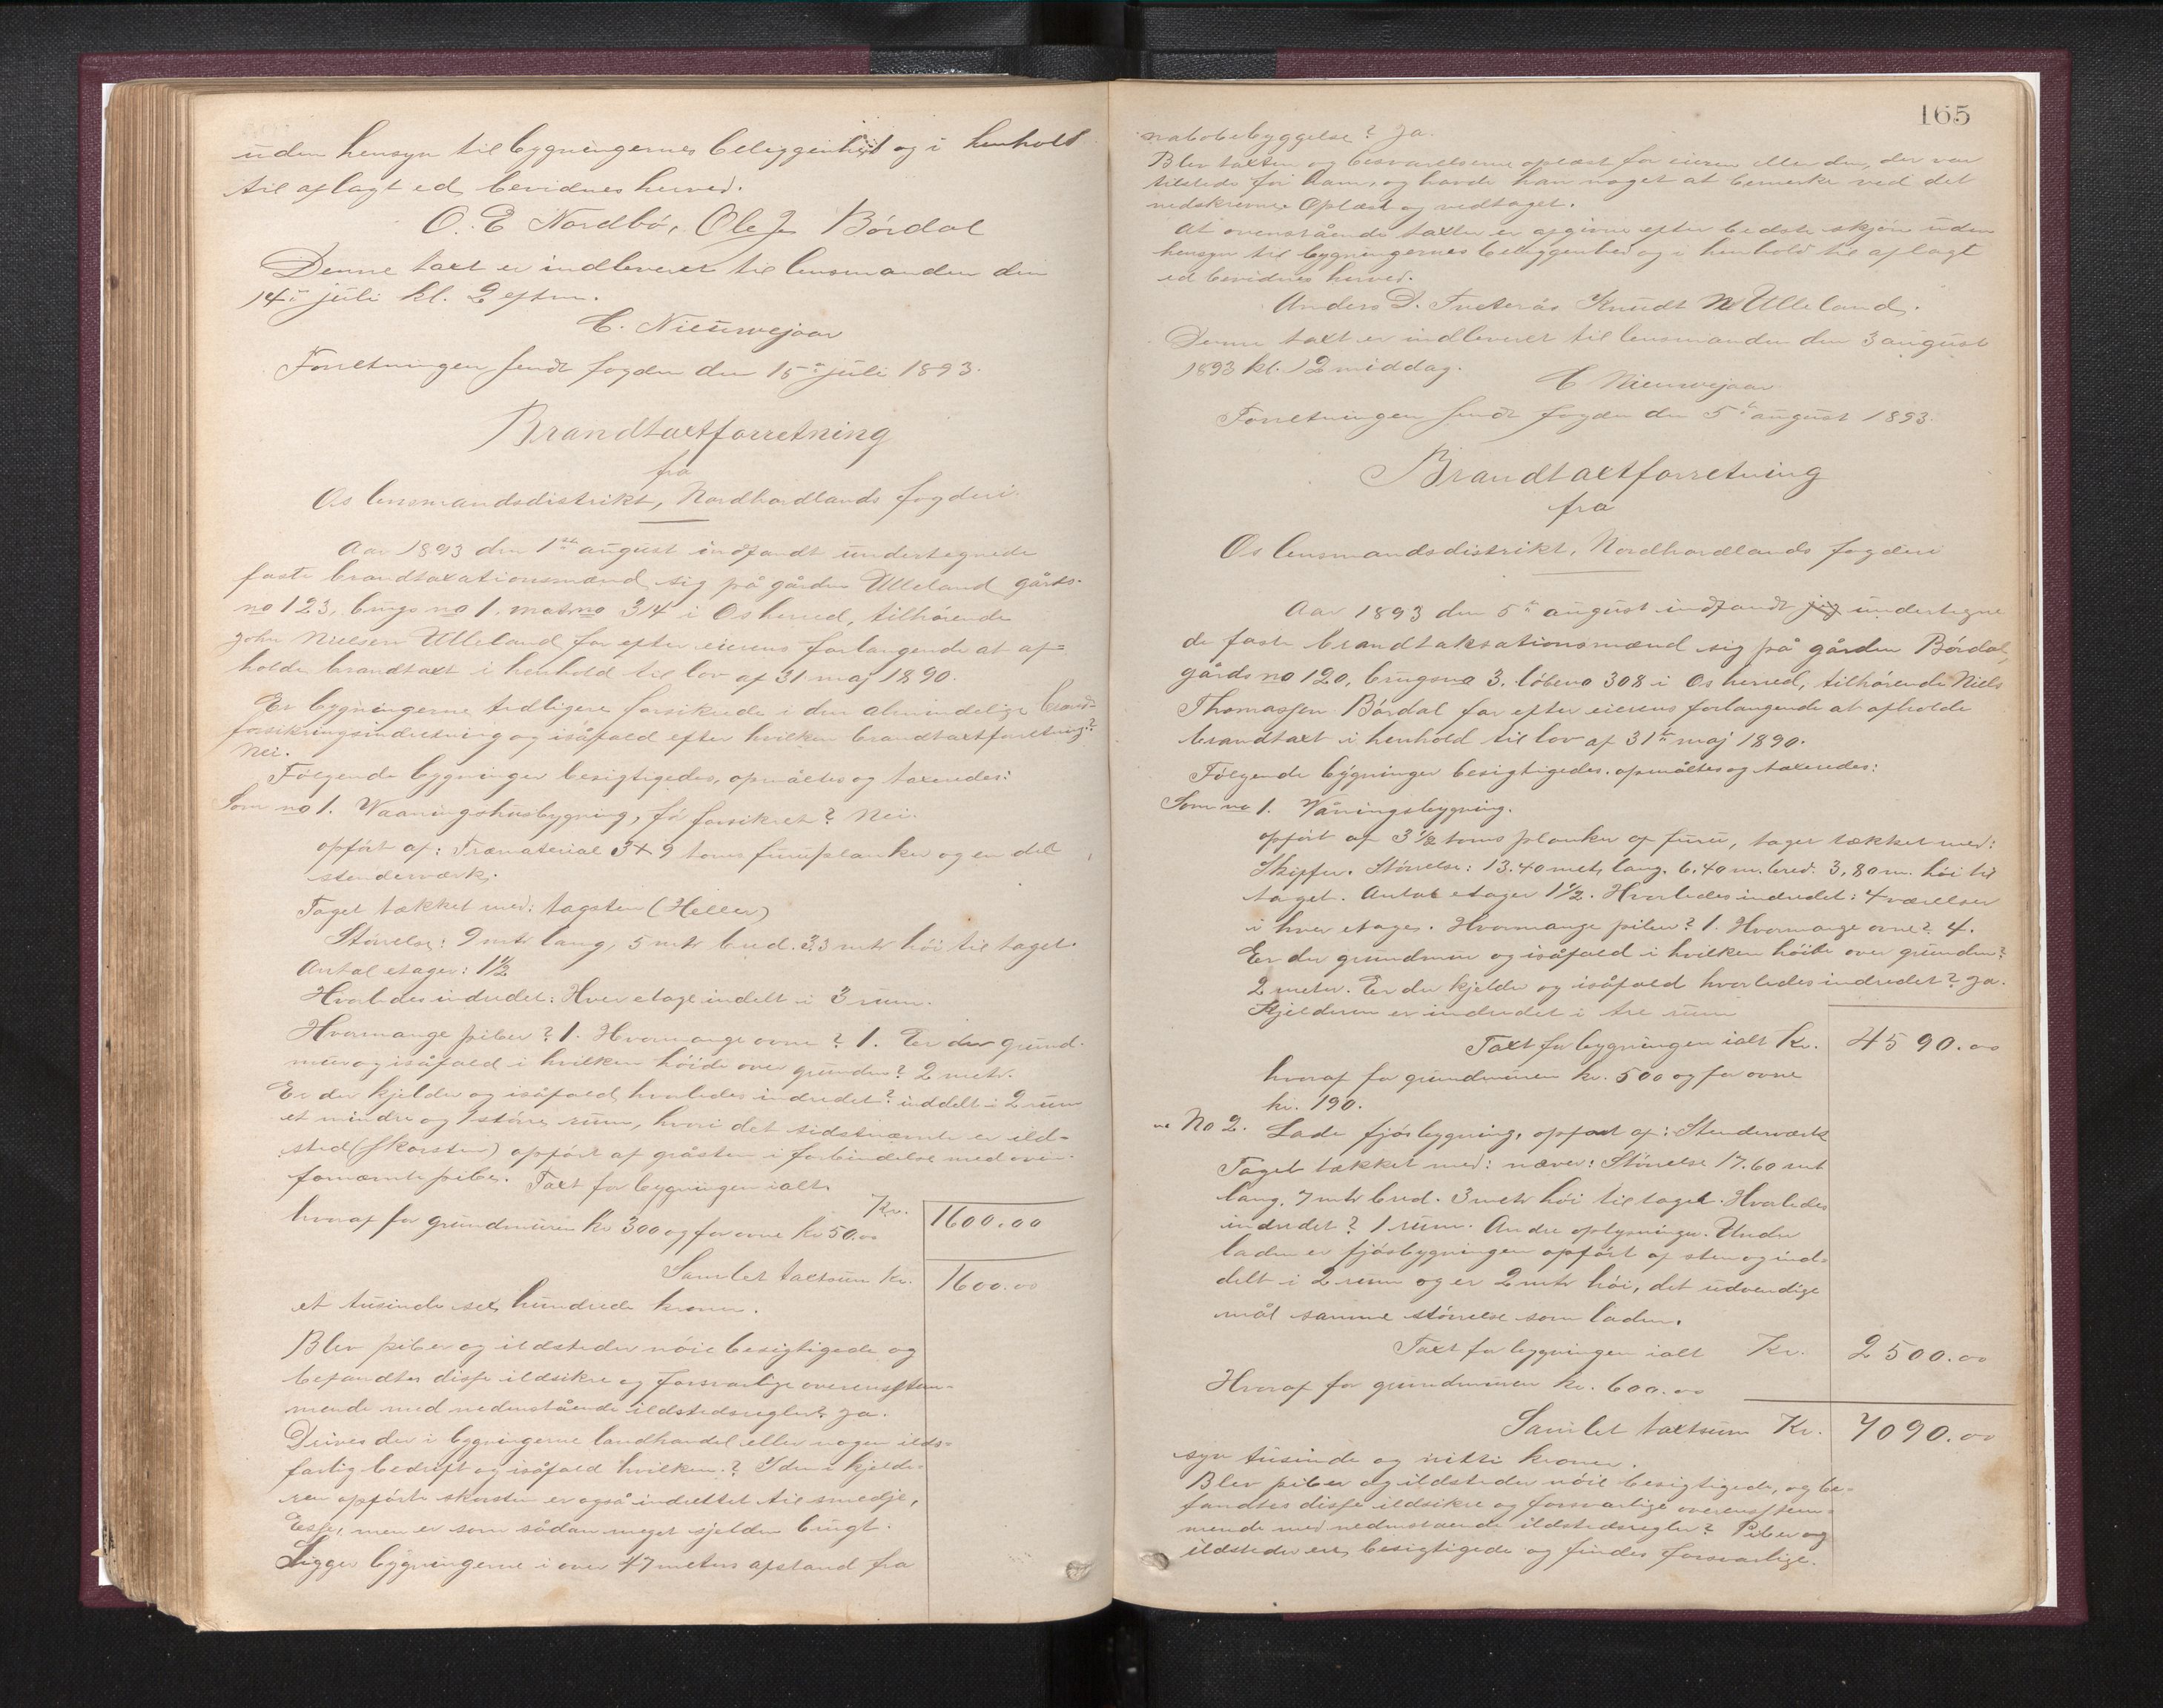 uden hensyn til bygningernes beliggenhet og i henhold
til aflagt ed bevidnes herved.
O. E Nordbö, Ole J Bördal
Denne taxt er indleveret til lensmanden den
14de juli kl. 2 eftm.
C. Nieuwejaar
Forretningen sendt fogden den 15de juli 1893.
Brandtaxtforretning
fra
Os lensmandsdistrikt, Nordhordlands fogderi.
Aar 1893 den 1ste august indfandt undertegnede
faste brandtaxationsmænd sig på gården Ulleland gårds-
no 123, brugs no 1. mat no 314 i Os herred, tilhörende
John Nielsen Ulleland for efter eierens forlangende at af=
holde brandtaxt i henhold til lov af 31 maj 1890.
Er bygningerne tidligere forsikrede i den almindelige brand-
forsikringsindretning og isåfald efter hvilken brandtaxtforretning?
Nei.
Fölgende bygninger besigtigedes, opmåltes og taxeredes:
Som no 1. Vaaningshusbygning, för forsikret? Nei.
opfört af: Træmaterial 3 x 9 toms furuplanker og en del
stenderværk.
Taget tækket med: tagsten (Heller)
Störrelse: 9 mtr lang, 5 mtr bred. 3,3 mtr höi til taget.
Antal etager: 1½
Hvorledes indredet: Hver etage indelt i 3 rum.
Hvormange piber? 1. Hvormange ovne? 1. Er der grund-
mur og isåfald i hvilken höide over grunden? 2 metr.
Er der kjelder og isåfald hvorledes indredet? inddelt i 2 rum
et mindre og 1 större rum, hvori det sidstnævnte er ild-
sted (skorsten) opfört af gråsten i forbindelse med oven-
fornævnte pibe. Taxt for bygningen ialt.
Kr. 1600.00
hvoraf for grundmuren kr 300 og for ovne kr 50.00
Samlet taxtsum Kr. 1600.00
et tusinde sex hundrede kroner.
Blev piber og ildsteder nöie besigtigede og
befandtes disse ildsikre og forsvarlige overensstem-
mende med nedenstående ildstedsregler? Ja.
Drives der i bygningerne landhandel eller nogen ilds-
farlig bedrift og isåfald hvilken? I den i kjelde-
ren opförte skorsten er også indrettet til smedje,
Esse, men er som sådan meget sjelden brugt.
Ligger bygningerne i over 47 meters afstand fra
165
nabobebyggelse? Ja.
Blev taxten og besvarelserne oplæst for eieren eller den, der var
tilstede for ham, og havde han noget at bemerke ved det
nedskrevne Oplæst og vedtaget.
At ovenstående taxter er afgivne efter bedste skjön uden
hensyn til bygningernes beliggenhed og i henhold til aflagt
ed bevidnes herved.
Anders D. Tveterås Knudt N Ulleland.
Denne taxt er indleveret til lensmanden den 3 august
1893 kl. 12 middag.
C Nieuwejaar
Forretningen sendt fogden den 5te august 1893.
Brandtaxtforretning
fra
Os lensmandsdistrikt, Nordhordlands fogderi
Aar 1893 den 5te august indfandt sig undertegne
de faste brandtaksationsmænd sig på gården Bördal,
gårds no 120, brugsno 3. löbeno 308 i Os herred, tilhörende Niels
Thomassen Bördal for efter eierens forlangende at afholde
brandtaxt i henhold til lov af 31te maj 1890.
Fölgende bygninger besigtigedes, opmåltes og taxeredes:
Som no 1. Våningsbygning.
opfört af 3½ toms planker af furu, taget tækket med:
Skiffer. Störrelse: 13.40 metr lang. 6.40 m. bred. 3,80 m. höi til
taget. Antal etager 1½. Hvorledes indredet: 4 værelser
i hver etage. Hvormange piber? 1. Hvormange ovne? 4.
Er der grundmur og isåfald i hvilken höide over grunden?
2 meter. Er der kjelder og isåfald hvorledes indredet? Ja.
Kjelderen er indredet i tre rum
Taxt for bygningen ialt Kr. 4590.00
hvoraf for grundmuren kr. 500 og for ovne
kr. 190.
No 2. Lade fjösbygning, opfört af: Stenderværk
Taget tækket med: næver: Störrelse 17.60 mt
lang. 7 mtr bred. 3 metr höi til taget. Hvorledes
indredet? 1 rum. Andre oplysninger. Under
laden er fjösbygningen opfört af sten og ind-
delt i 2 rum og er 2 mtr höi, det udvendige
mål samme störrelse som laden.
Taxt for bygningen ialt Kr. 2500.00
Hvoraf for grundmuren kr. 600.00
Samlet taxtsum Kr. 7090.00
syv tusinde og nitti kroner.
Blev piber og ildsteder nöie besigtigede, og be-
fandtes disse ildsikre og forsvarlige overensstem-
mende med nedenstaaende ildstedsregler? Piber og
ildsteder ere besigtigede og findes forsvarlige.